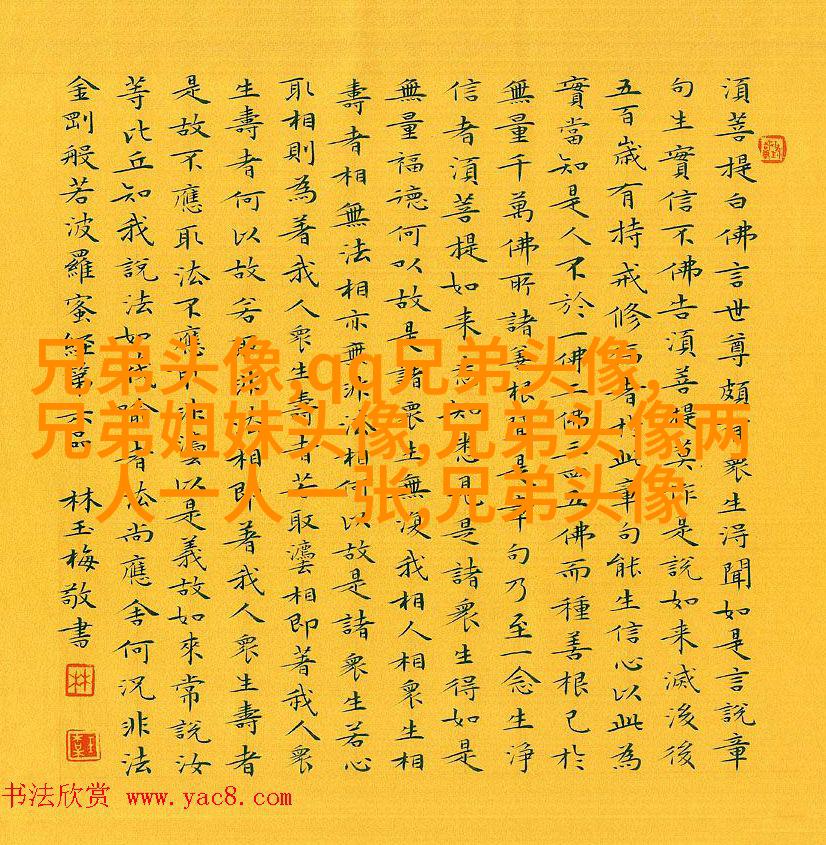 須菩提白佛言世尊頗有衆生得聞如是言說章
句生實信不佛告須菩提莫作是說如来滅後後
五百歲有持戒修福者於此章句能生信心以此為
實當知是人不於一佛二佛三四五佛而種善根已於
無量千萬佛所諸善根聞是章句乃至一念生淨
信者須菩提如来悉知悉見是諸衆生得如是
無量福德何以故是諸衆生無復我相人相衆生相
壽者相無法相亦無非法相何以故是諸衆生若心
取相則為著我人衆生壽者若取灋相即著我人衆
生壽者何以故若取非法相即著我人衆生壽者
是故不應取法不應取非灋以是義故如來常說汝
等比丘知我說法如筏喻者法尚應舍何況非法
金剛般若波羅蜜經第六品 林玉梅敬書
林
兄弟头像,qq兄弟头像,
兄弟姐妹头像,兄弟头像两
人一人一张,兄弟头像
书法欣赏 www.yac8.com